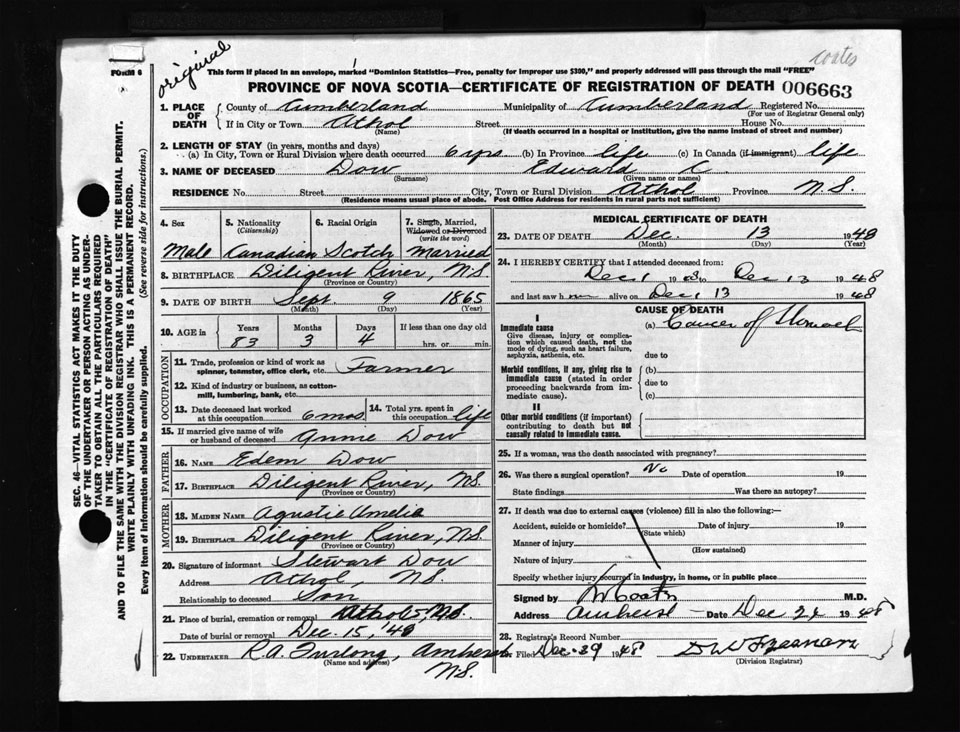 original
coates
FORM 6
This form if placed in an envelope, marked "Dominion Statistics—Free, penalty for improper use $300," and properly addressed will pass through the mail "FREE"
PROVINCE OF NOVA SCOTIA—CERTIFICATE OF REGISTRATION OF DEATH 006663
1. PLACE OF DEATH County of Cumberland Municipality of Cumberland Registered No.
(For use of Registrar General only)
If in City or Town Athol Street House No.
(Name) (If death occurred in a hospital or institution, give the name instead of street and number)
2. LENGTH OF STAY (in years, months and days)
(a) In City, Town or Rural Division where death occurred 6 yrs (b) In Province life (c) In Canada (if immigrant) life
3. NAME OF DECEASED Dow Edward C.
(Surname) (Given name or names)
RESIDENCE No. Street City, Town or Rural Division Athol Province N.S.
(Residence means usual place of abode. Post Office Address for residents in rural parts not sufficient)
4. Sex 5. Nationality (Citizenship) 6. Racial Origin 7. Single, Married, Widowed or Divorced (write the word)
Male Canadian Scotch Married
8. BIRTHPLACE Diligent River, N.S.
(Province or Country)
9. DATE OF BIRTH Sept. 9 1865
(Month) (Day) (Year)
10. AGE in Years Months Days If less than one day old
83 3 4 hrs. or min.
OCCUPATION
11. Trade, profession or kind of work as spinner, teamster, office clerk, etc. Farmer
12. Kind of industry or business, as cotton-mill, lumbering, bank, etc.
13. Date deceased last worked at this occupation 6 mos. 14. Total yrs. spent in this occupation life
15. If married give name of wife or husband of deceased Annie Dow
FATHER
16. NAME Edem Dow
17. BIRTHPLACE Diligent River, N.S.
(Province or Country)
MOTHER
18. MAIDEN NAME Amelia
19. BIRTHPLACE Diligent River, N.S.
(Province or Country)
20. Signature of informant Stewart Dow
Address Athol, N.S.
Relationship to deceased Son
21. Place of burial, cremation or removal Athol, N.S.
Date of burial or removal Dec. 15, '48
22. UNDERTAKER R.A. Furlong, Amherst
(Name and address) N.S.
MEDICAL CERTIFICATE OF DEATH
23. DATE OF DEATH Dec. 13 1948
(Month) (Day) (Year)
24. I HEREBY CERTIFY that I attended deceased from:
Dec 1 to Dec 13 1948
and last saw h alive on Dec 13 1948
CAUSE OF DEATH
I
Immediate cause (a) Cancer of Stomach
Give disease, injury or complication which caused death, not the mode of dying, such as heart failure, asphyxia, asthenia, etc.
due to
Morbid conditions, if any, giving rise to immediate cause (stated in order proceeding backwards from immediate cause). (b)
due to
(c)
II
Other morbid conditions (if important) contributing to death but not causally related to immediate cause.
25. If a woman, was the death associated with pregnancy?
26. Was there a surgical operation? No Date of operation 19
State findings Was there an autopsy?
27. If death was due to external causes (violence) fill in also the following:—
Accident, suicide or homicide? Date of injury 19
(State which)
Manner of injury
(How sustained)
Nature of injury
Specify whether injury occurred in industry, in home, or in public place
Signed by Coates M.D.
Address Amherst Date Dec 1948
28. Registrar's Record Number
Filed Dec. 29 1948 Freeman
(Division Registrar)
SEC. 46—VITAL STATISTICS ACT MAKES IT THE DUTY
OF THE UNDERTAKER OR PERSON ACTING AS UNDER-
TAKER TO OBTAIN ALL THE PARTICULARS REQUIRED
IN THE "CERTIFICATE OF REGISTRATION OF DEATH"
AND TO FILE THE SAME WITH THE DIVISION REGISTRAR WHO SHALL ISSUE THE BURIAL PERMIT.
WRITE PLAINLY WITH UNFADING INK. THIS IS A PERMANENT RECORD.
Every item of information should be carefully supplied. (See reverse side for instructions.)